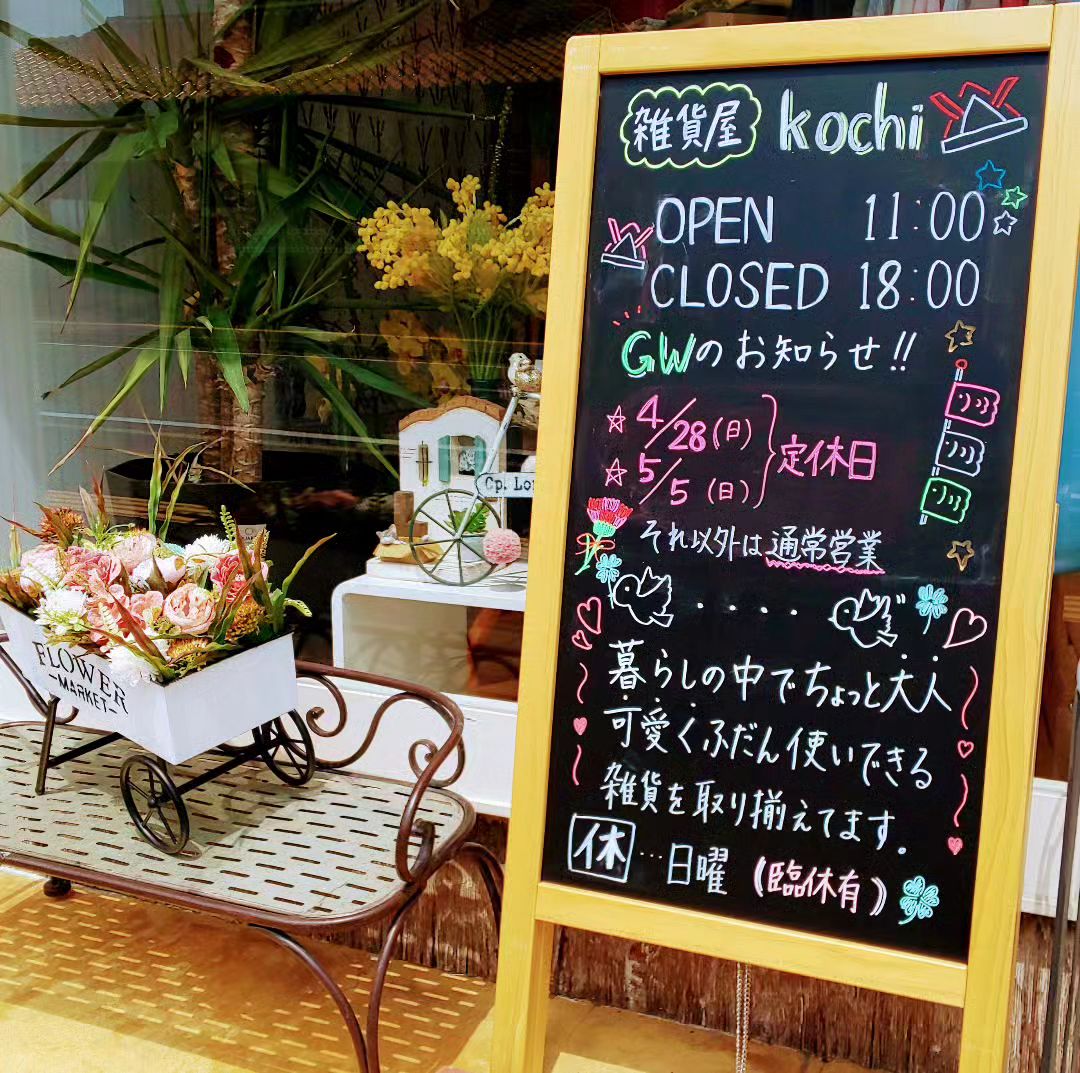 雑貨屋 kochi
OPEN 11:00
CLOSED 18:00
GWのお知らせ!!
☆ 4/28(日)
☆ 5/5(日)
定休日
それ以外は通常営業
・・・・
暮らしの中でちょっと大人
可愛くふだん使いできる
雑貨を取り揃えてます.
休…日曜(臨休有)
FLOWER
-MARKET-